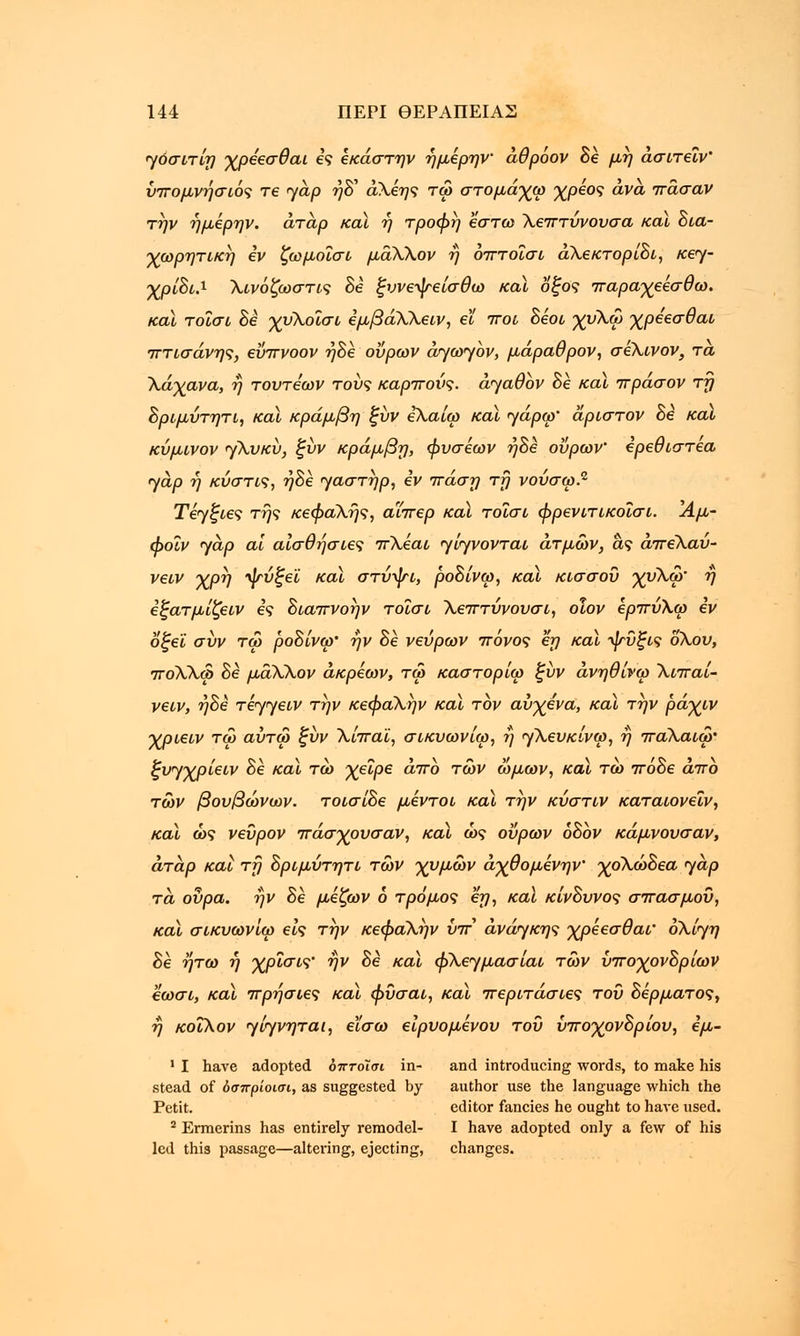 144 ΠΕΡΙ ΘΕΡΑΠΕΙΑΣ
γόσιτίῃ χρέεσθαι ἐς ἑκάστην ἡμέρην· ἀθρόον δὲ μὴ ἀσιτεῖν·
ὑπομνήσιός τε γὰρ ἠδ' ἀλέης τῷ στομάχῳ χρέος ἀνὰ πᾶσαν
τὴν ἡμέρην. ἀτὰρ καὶ ἡ τροφὴ ἔστω λεπτύνουσα καὶ δια-
χωρητικὴ ἐν ζωμοῖσι μᾶλλον ἢ ὀπτοῖσι ἀλεκτορίδι, κεγ-
χρίδι.¹ λινόζωστις δὲ ξυνεψείσθω καὶ ὄξος παραχεέσθω.
καὶ τοῖσι δὲ χυλοῖσι ἐμβάλλειν, εἴ ποι δέοι χυλῷ χρέεσθαι
πτισάνης, εὔπνοον ἠδὲ οὔρων ἀγωγὸν, μάραθρον, σέλινον, τὰ
λάχανα, ἢ τουτέων τοὺς καρπούς. ἀγαθὸν δὲ καὶ πράσον τῇ
δριμύτητι, καὶ κράμβη ξὺν ἐλαίῳ καὶ γάρῳ· ἄριστον δὲ καὶ
κύμινον γλυκὺ, ξὺν κράμβῃ, φυσέων ἠδὲ οὔρων· ἐρεθιστέα
γὰρ ἡ κύστις, ἠδὲ γαστὴρ, ἐν πάσῃ τῇ νούσῳ.²
Τέγξιες τῆς κεφαλῆς, αἵπερ καὶ τοῖσι φρενιτικοῖσι. Ἀμ-
φοῖν γὰρ αἱ αἰσθήσιες πλέαι γίγνονται ἀτμῶν, ἃς ἀπελαύ-
νειν χρὴ ψύξεϊ καὶ στύψι, ῥοδίνῳ, καὶ κισσοῦ χυλῷ· ἢ
ἐξατμίζειν ἐς διαπνοὴν τοῖσι λεπτύνουσι, οἷον ἑρπύλῳ ἐν
ὄξεϊ σὺν τῷ ῥοδίνῳ· ἢν δὲ νεύρων πόνος ἔῃ καὶ ψῦξις ὅλου,
πολλῷ δὲ μᾶλλον ἀκρέων, τῷ καστορίῳ ξὺν ἀνηθίνῳ λιπαί-
νειν, ἠδὲ τέγγειν τὴν κεφαλὴν καὶ τὸν αὐχένα, καὶ τὴν ῥάχιν
χρίειν τῷ αὐτῷ ξὺν λίπαϊ, σικυωνίῳ, ἢ γλευκίνῳ, ἢ παλαιῷ·
ξυγχρίειν δὲ καὶ τὼ χεῖρε ἀπὸ τῶν ὤμων, καὶ τὼ πόδε ἀπὸ
τῶν βουβώνων. τοισίδε μέντοι καὶ τὴν κύστιν καταιονεῖν,
καὶ ὡς νεῦρον πάσχουσαν, καὶ ὡς οὔρων ὁδὸν κάμνουσαν,
ἀτὰρ καὶ τῇ δριμύτητι τῶν χυμῶν ἀχθομένην· χολώδεα γὰρ
τὰ οὖρα. ἢν δὲ μέζων ὁ τρόμος ἔῃ, καὶ κίνδυνος σπασμοῦ,
καὶ σικυωνίῳ εἰς τὴν κεφαλὴν ὑπ' ἀνάγκης χρέεσθαι· ὀλίγη
δὲ ἤτω ἡ χρῖσις· ἢν δὲ καὶ φλεγμασίαι τῶν ὑποχονδρίων
ἔωσι, καὶ πρήσιες καὶ φῦσαι, καὶ περιτάσιες τοῦ δέρματος,
ἢ κοῖλον γίγνηται, εἴσω εἰρυομένου τοῦ ὑποχονδρίου, ἐμ-
¹ I have adopted ὀπτοῖσι in-
stead of ὀσπρίοισι, as suggested by
Petit.
² Ermerins has entirely remodel-
led this passage—altering, ejecting,
and introducing words, to make his
author use the language which the
editor fancies he ought to have used.
I have adopted only a few of his
changes.